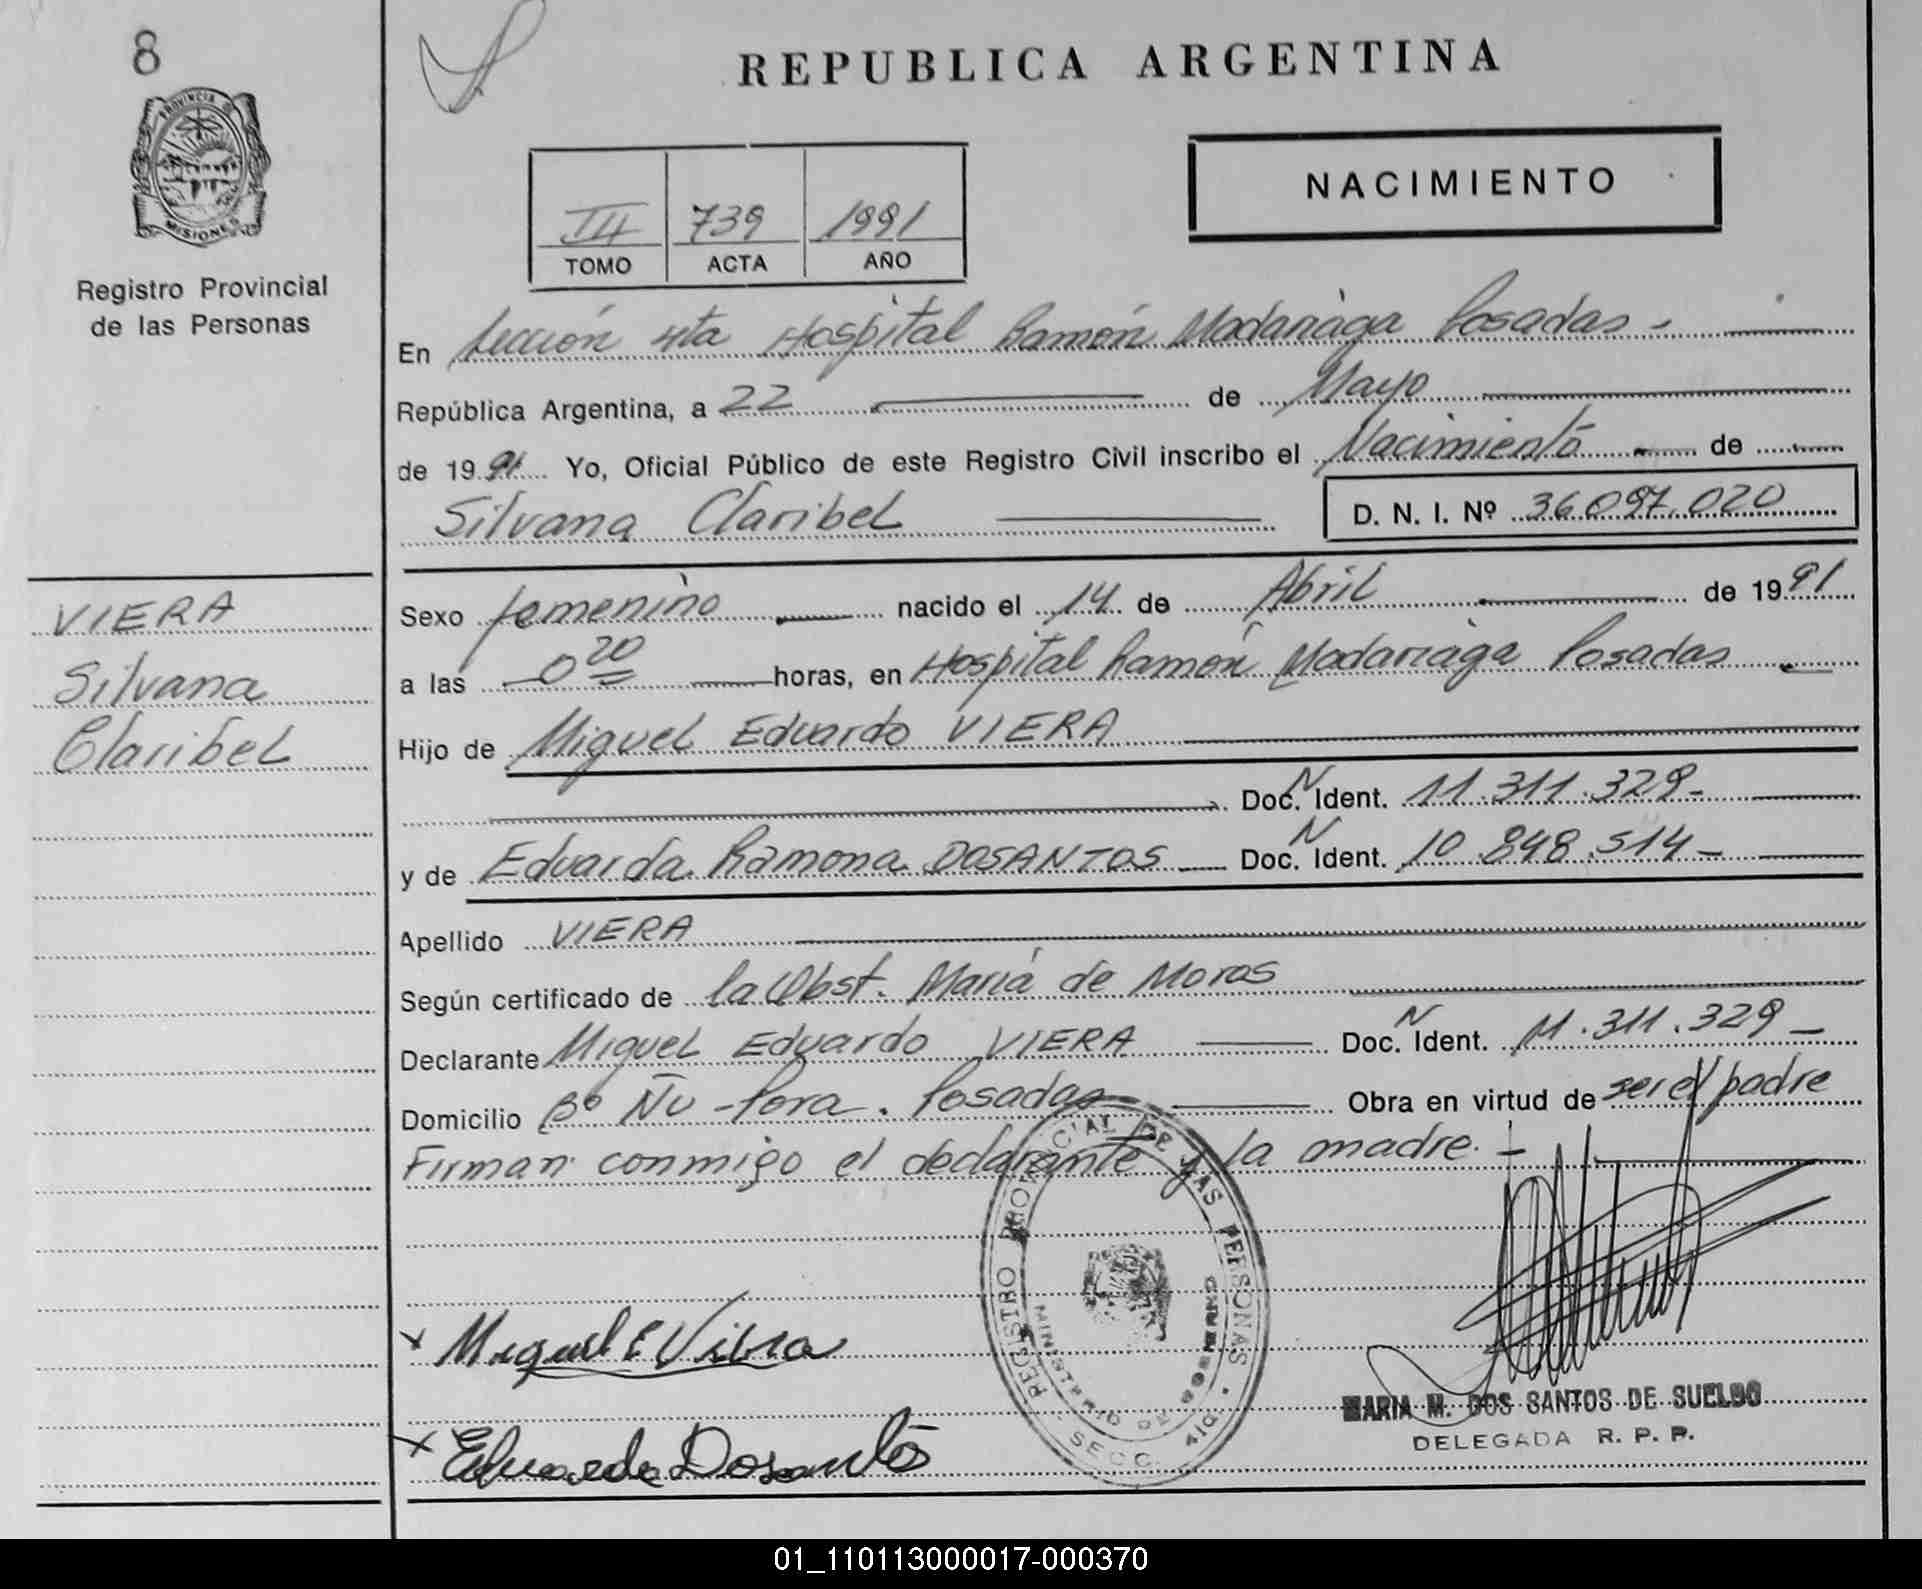 8
PROVINCIA DE
MISIONES
Registro Provincial
de las Personas
VIERA
Silvana
Claribel
REPUBLICA ARGENTINA
III 739 1991
TOMO ACTA AÑO
NACIMIENTO
En Sección 4ta Hospital Ramón Madariaga Posadas -
República Argentina, a 22 de Mayo
de 1991 Yo, Oficial Público de este Registro Civil inscribo el Nacimiento de
Silvana Claribel
D. N. I. Nº 36.097.020
Sexo femenino nacido el 14 de Abril de 1991
a las 0 20 horas, en Hospital Ramón Madariaga Posadas
Hijo de Miguel Eduardo VIERA
Doc. N Ident. 11.311.329-
y de Eduarda Ramona DOSANTOS Doc. N Ident. 10.848.514-
Apellido VIERA
Según certificado de la Obst. María de Moras
Declarante Miguel Eduardo VIERA Doc. N Ident. 11.311.329-
Domicilio Bº Ñu-Pora. Posadas Obra en virtud de ser el padre
Firman conmigo el declarante y la madre.-
REGISTRO PROVINCIAL DE LAS PERSONAS
MINISTERIO DE GOBIERNO
SECC. 4ta.
x Miguel E Viera
x Eduarda Dosantos
MARIA M. DOS SANTOS DE SUELDO
DELEGADA R. P. P.
01_110113000017-000370